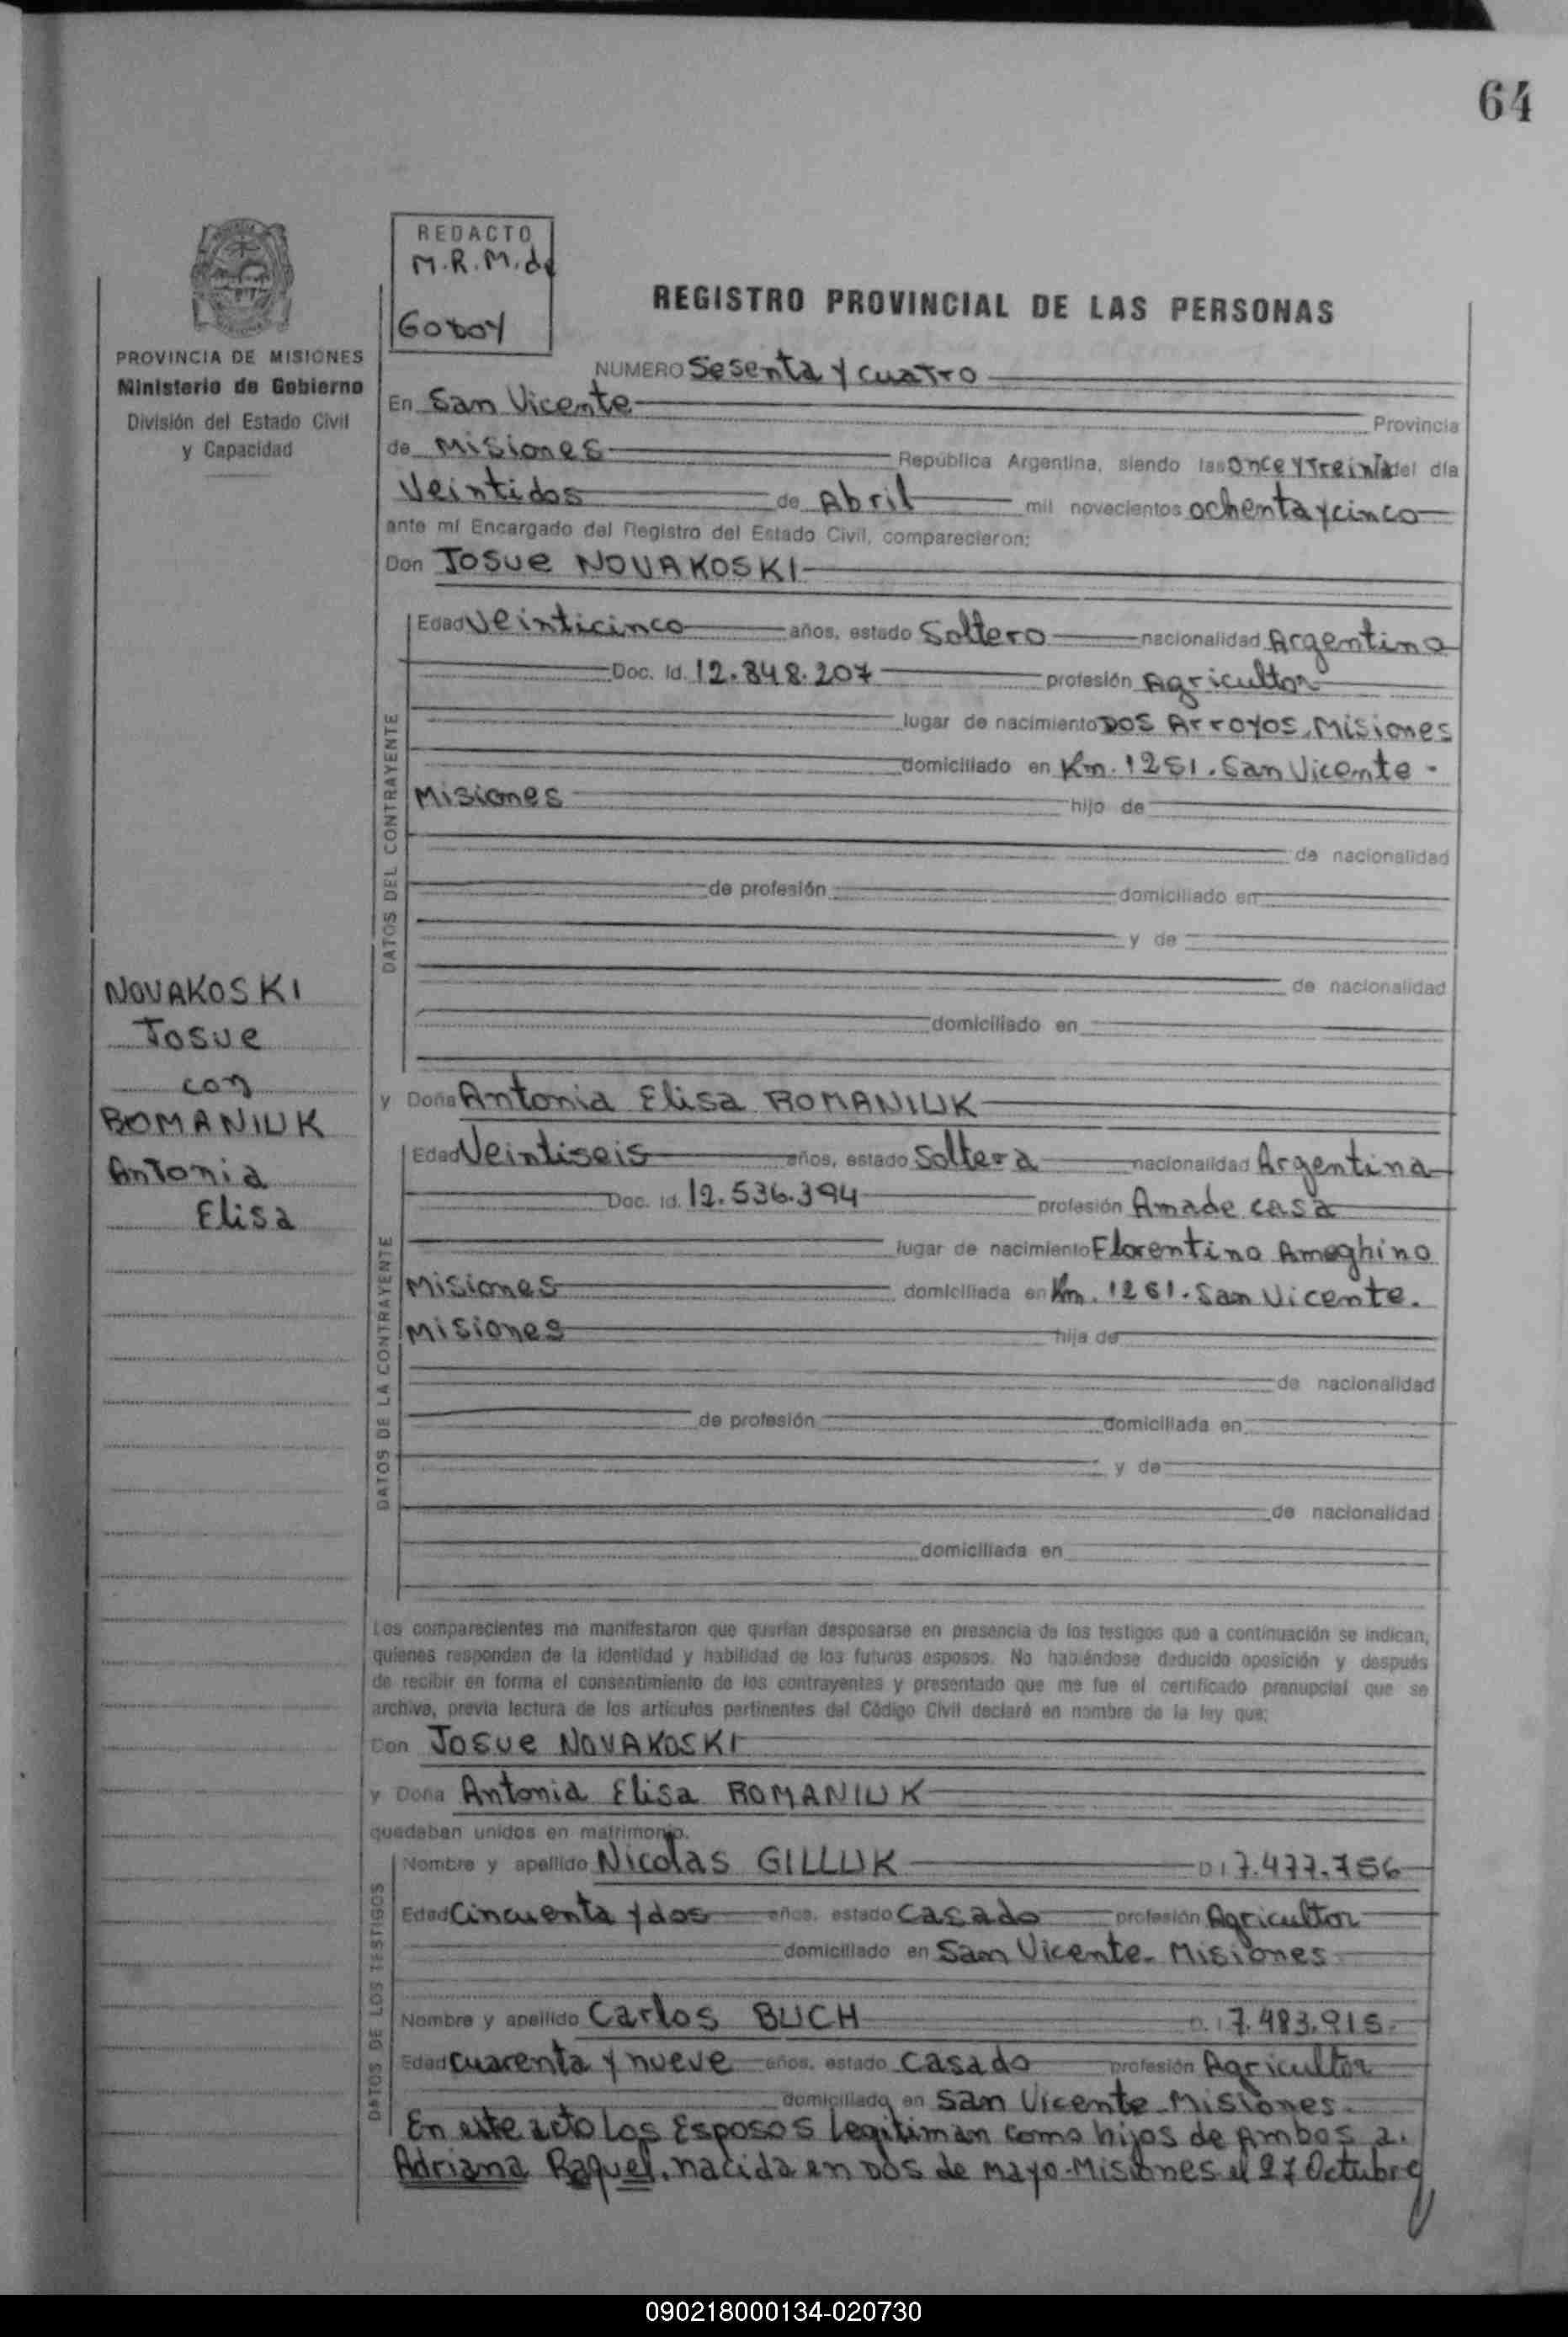 64
REDACTO
M.R.M. de
Godoy
PROVINCIA DE MISIONES
Ministerio de Gobierno
División del Estado Civil
y Capacidad
REGISTRO PROVINCIAL DE LAS PERSONAS
NUMERO Sesenta y cuatro
En San Vicente Provincia
de Misiones República Argentina, siendo las once y treinta del día
Veintidos de Abril mil novecientos ochenta y cinco
ante mí Encargado del Registro del Estado Civil, comparecieron:
Don Josue NOVAKOSKI
DATOS DEL CONTRAYENTE
Edad Veinticinco años, estado Soltero nacionalidad Argentina
Doc. Id. 12.848.207 profesión Agricultor
lugar de nacimiento Dos Arroyos, Misiones
domiciliado en Km. 1251. San Vicente -
Misiones hijo de
de nacionalidad
de profesión domiciliado en
y de
de nacionalidad
domiciliado en
NOVAKOSKI
Josue
con
ROMANIUK
Antonia
Elisa
y Doña Antonia Elisa ROMANIUK
DATOS DE LA CONTRAYENTE
Edad Veintiseis años, estado Soltera nacionalidad Argentina
Doc. Id. 12.536.394 profesión Ama de casa
lugar de nacimiento Florentino Ameghino
Misiones domiciliada en Km. 1251. San Vicente.
Misiones hija de
de nacionalidad
de profesión domiciliada en
y de
de nacionalidad
domiciliada en
Los comparecientes me manifestaron que querían desposarse en presencia de los testigos que a continuación se indican,
quienes responden de la identidad y habilidad de los futuros esposos. No habiéndose deducido oposición y después
de recibir en forma el consentimiento de los contrayentes y presentado que me fue el certificado prenupcial que se
archiva, previa lectura de los artículos pertinentes del Código Civil declaré en nombre de la ley que:
Don Josue NOVAKOSKI
y Doña Antonia Elisa ROMANIUK
quedaban unidos en matrimonio.
DATOS DE LOS TESTIGOS
Nombre y apellido Nicolas GILLUK D.I 7.477.756
Edad Cincuenta y dos años, estado Casado profesión Agricultor
domiciliado en San Vicente - Misiones
Nombre y apellido Carlos BUCH D.I 7.483.915.
Edad cuarenta y nueve años, estado Casado profesión Agricultor
domiciliado en San Vicente - Misiones.
En este acto los Esposos Legitiman como hijos de Ambos a.
Adriana Raquel, nacida en Dos de Mayo-Misiones el 27 Octubre
090218000134-020730